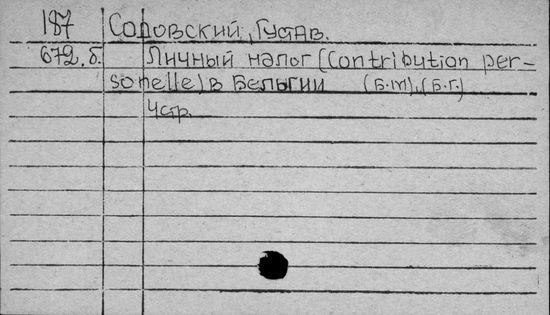 187 Садовский, Густав.
672.б. Личный налог (Contribution per-
sonelle) в Бельгии (Б.м), (Б.г.)
4стр.